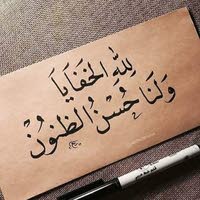 لِلّٰهِ الخَفَايَا
وَلَنَا حُسْنُ الظُّنُونْ